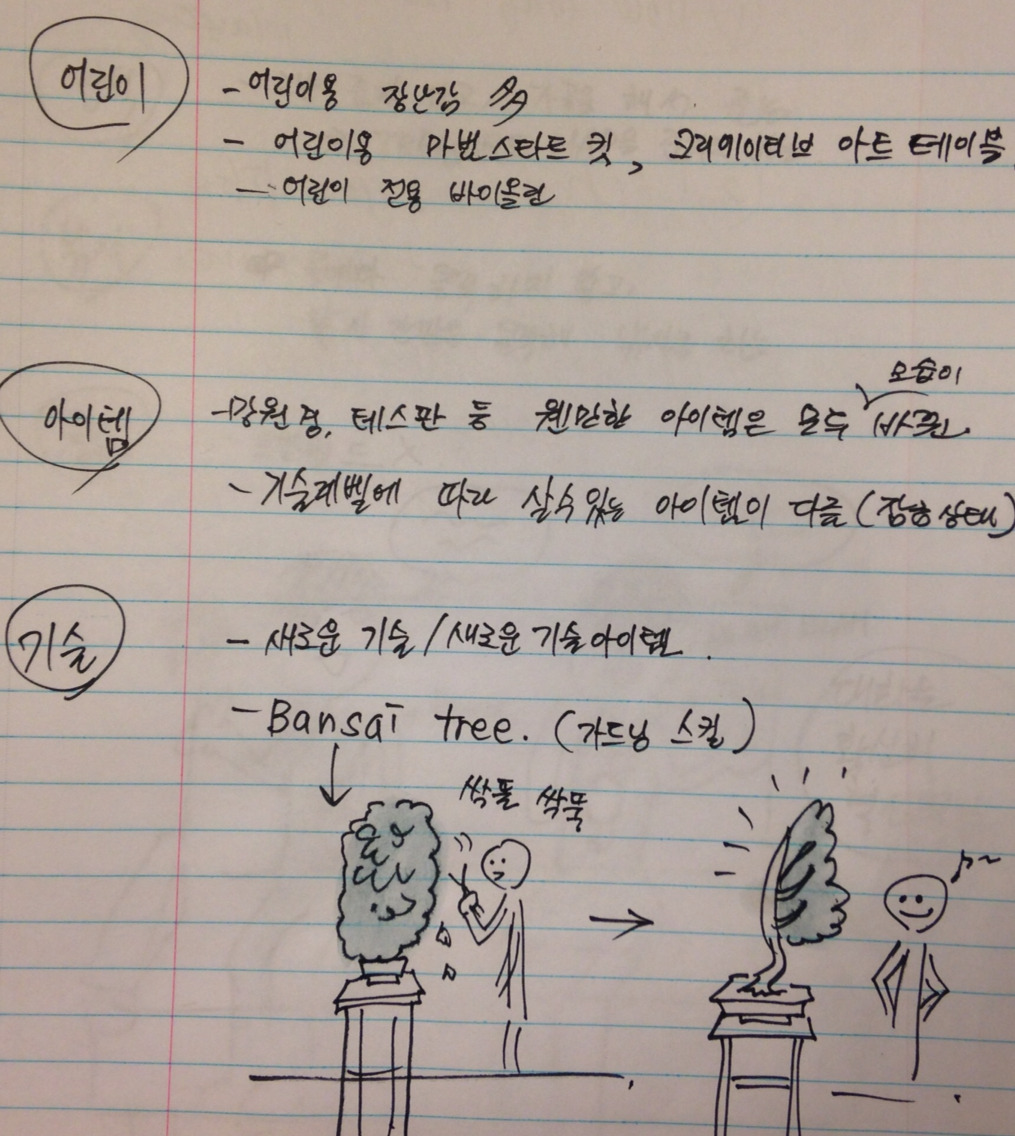 어린이
- 어린이용 장난감 多
- 어린이용 마법스타트 킷, 크리에이티브 아트 테이블
- 어린이 전용 바이올린
아이템
모습이
- 망원경, 체스판 등 웬만한 아이템은 모두 바뀐
- 기술레벨에 따라 살수있는 아이템이 다름 (잠금상태)
기술
- 새로운 기술 / 새로운 기술아이템.
- Bansai tree. (가드닝 스킬)
싹뚝 싹뚝